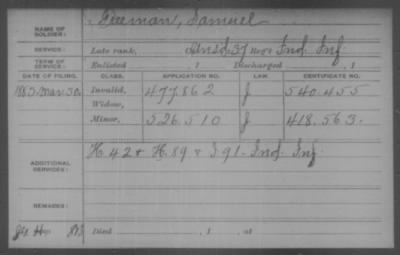 NAME OF SOLDIER: Freeman, Samuel
SERVICE: Late rank, Unsd. 37 Reg't Ind. Inf.
TERM OF SERVICE: Enlisted , 1 Discharged , 1
DATE OF FILING. CLASS. APPLICATION NO. LAW. CERTIFICATE NO.
1883 Mar. 30 Invalid, 477.862 J 540.455
Widow,
Minor, 526.510 J 418.563
ADDITIONAL SERVICES: H. 42 & H. 89 & I 91. Ind. Inf.
REMARKS:
Died , 1 , at